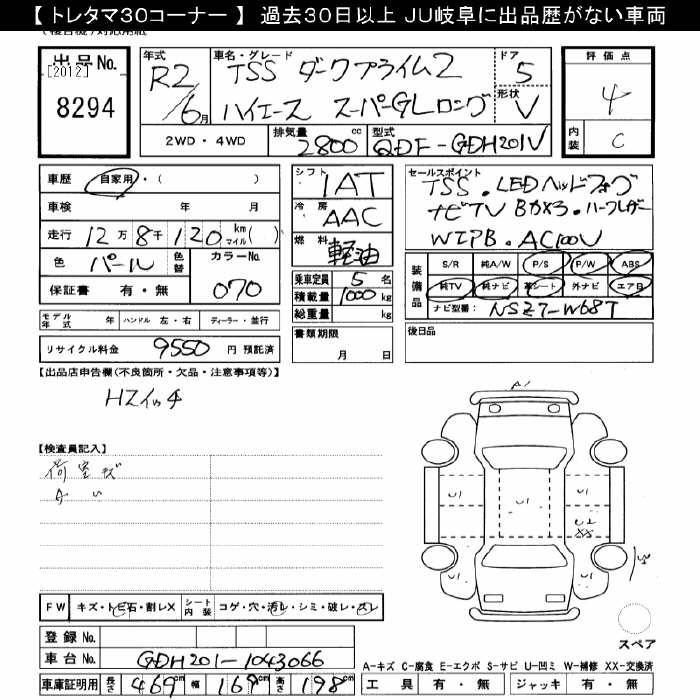 【トレタマ30コーナー】過去30日以上 JU岐阜に出品歴がない車両
出品No.
[2012]
8294
年式 R2/6月
車名・グレード TSS ダークプライム2
ハイエース スーパーGLロング
ドア 5
形状 V
評価点 4
内装 C
2WD・4WD 排気量 2800cc 型式 QDF-GDH201V
車歴 自家用・( )
車検 年 月
走行 12万8千120 km マイル( )
色 パール 色替 カラーNo. 070
保証書 有・無
シフト IAT
冷房 AAC
燃料 軽油
乗車定員 5名
積載量 1000kg
総重量 kg
書類期限
月 日
セールスポイント
TSS・LEDヘッドフォグ
ナビTV Bカメラ・ハーフレザー
WIPB・AC100V
装備品 S/R 純A/W P/S P/W ABS
純TV 純ナビ 革シート 外ナビ エアB
ナビ型番: NSZT-W68T
モデル年式 年 ハンドル 左・右 ディーラー・並行
リサイクル料金 9550円 預託済
後日品
【出品店申告欄(不良箇所・欠品・注意事項等)】
Hスイッチ
【検査員記入】
荷室キズ
A1
U1 U1 U1
U2
XX
FW キズ・トビ石・割レX シート内装 コゲ・穴・汚レ・シミ・破レ・スレ
登録No.
車台No. GDH201-1043066
車庫証明用 長さ 469cm 幅 169cm 高さ 198cm
スペア
A-キズ C-腐食 E-エクボ S-サビ U-凹ミ W-補修 XX-交換済
工具 有・無 ジャッキ 有・無